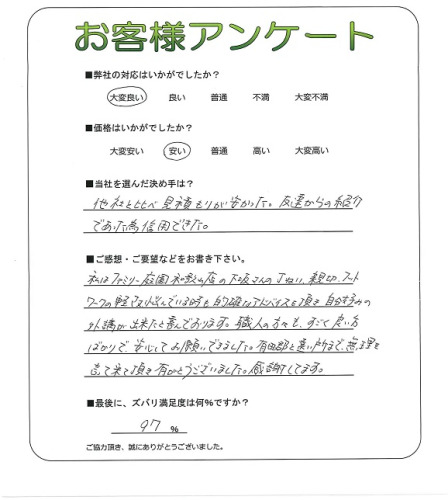 お客様アンケート
■弊社の対応はいかがでしたか？
大変良い 良い 普通 不満 大変不満
■価格はいかがでしたか？
大変安い 安い 普通 高い 大変高い
■当社を選んだ決め手は？
他社と比べ見積もりが安かった。友達からの紹介
であった為信用できた。
■ご感想・ご要望などをお書き下さい。
私はファミリー庭園和歌山店の下坂さんのていねい、親切、フット
ワークの軽さ 的確なアドバイスを頂き自分好みの
外構が出来たと喜んでおります。職人の方々も、すごく良い方
ばかりで、安心してお願いできました。有田郡と遠い所まで、無理を
言って来て頂き有がとうございました。感謝してます。
■最後に、ズバリ満足度は何%ですか？
97 %
ご協力頂き、誠にありがとうございました。